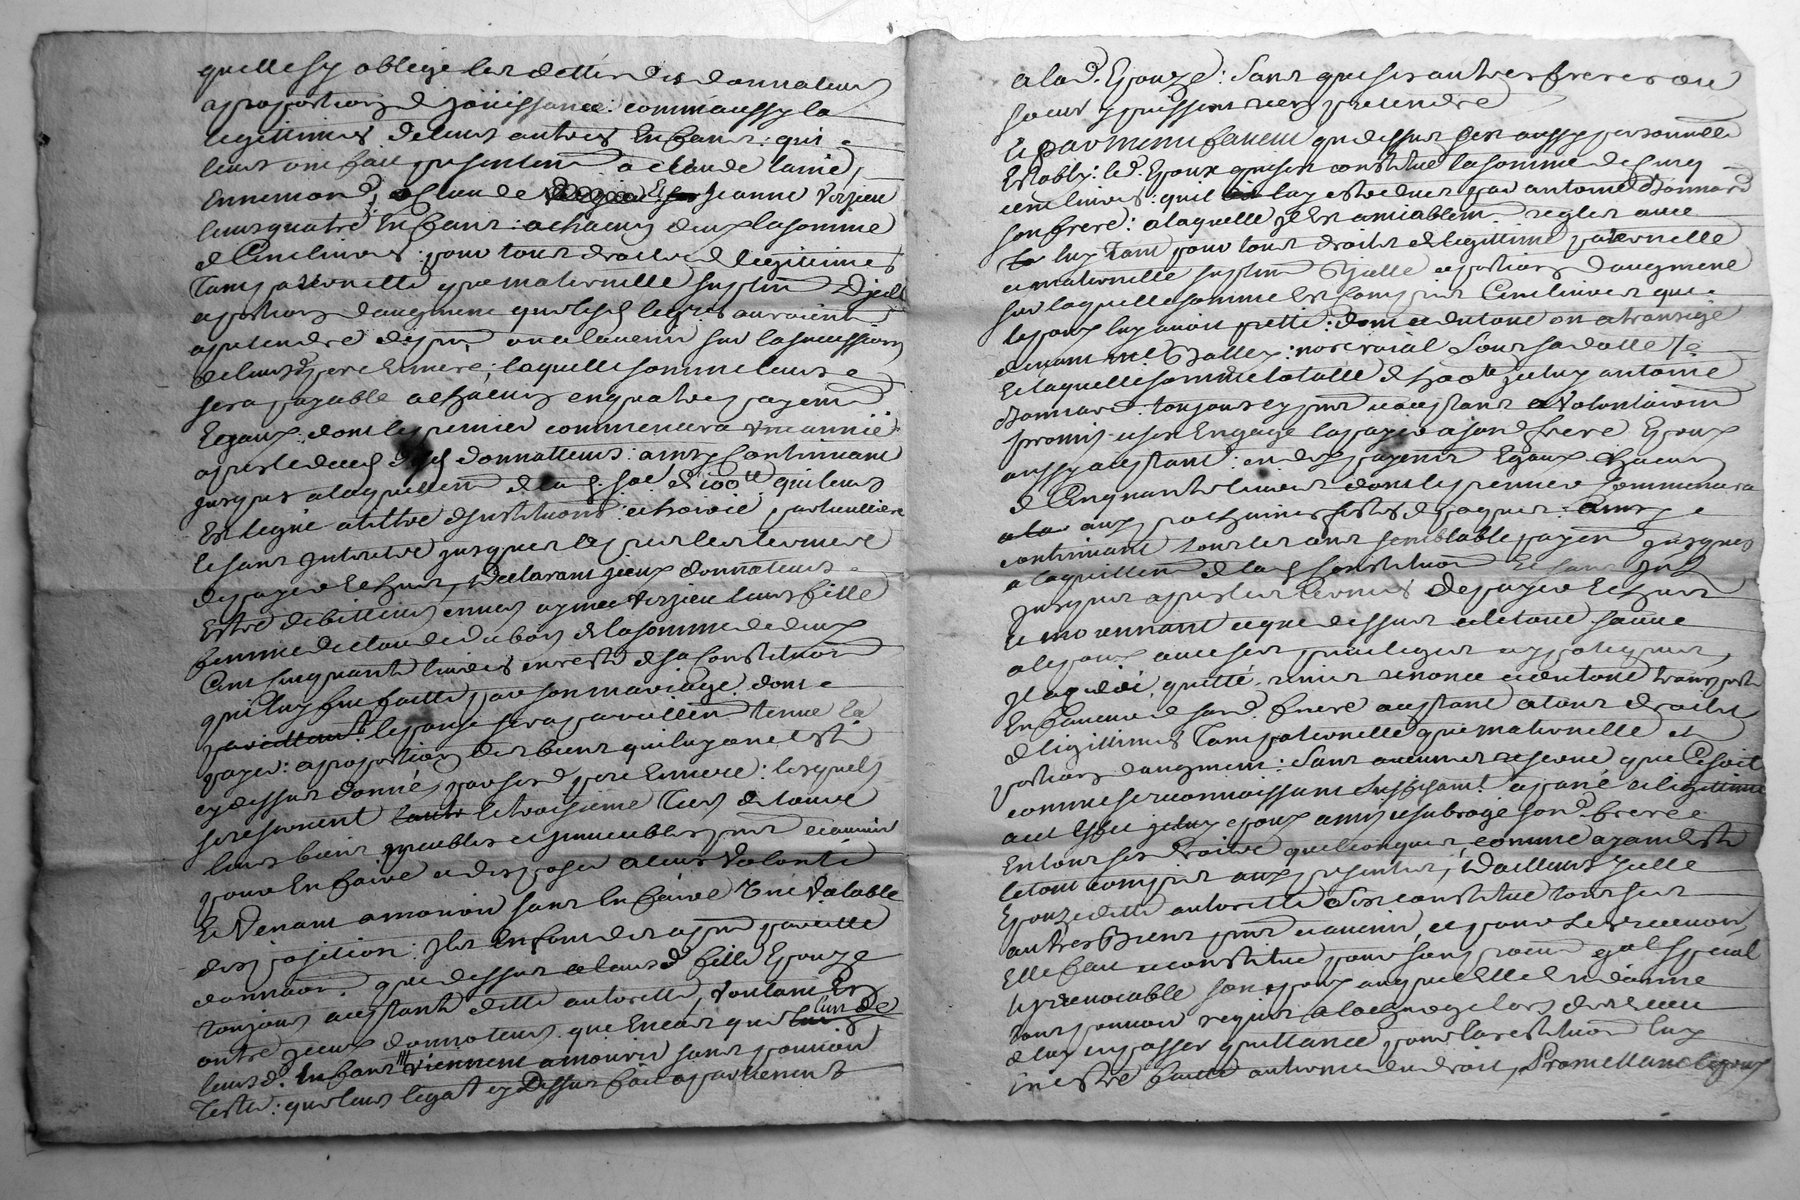 quelle sy oblege les dettes des donnateurs
a proportion de jouissance: comme aussy la
legittimes de leurs autres enfans: qui
leurs ont fait a claude laine,
Ennemond, claude Jeanne Verzieu
leurs quatre enfans: a chacun deux la somme
de Cent livres: pour tous droits de legitimes
tant paternelle que maternelle suplem d'icelle
et portion daugment quils auroient
a pretendre de pnt ou a lavenir sur la succession
de leursd pere et mere; laquelle somme leurs
sera payable a chacun en quatres payemt
Egaux: dont le premier commencera une année
apres le deced desd donnatteurs: ainsy continuant
jusques a laquittem de lad soe de 100tt qui leurs
Est legué a tittre dinstitution et hoirie particulliere
Et sans interetz jusques les termes
de payer Echeus, Declarant jceux donnateurs
Estre debitteurs envers aymee Verzieu leurs fille
femme de claude dubois de la somme de deux
Cent cinquante livres en reste de sa constitution
qui luy fut faitte par son mariage. dont
lespouse sera pareillem tenue la
payer: a proportion des biens qui luy ont esté
cy dessus donnés par sesd pere et mere: lesquels
se reservent le troisieme tiers de tous
leurs biens meubles et immeubles pnts et advenir
pour En faire et disposer a leurs volonté
Et Venant a mourir sans En faire Une valable
disposition: Ils En font des a pnt pareille
donnaon que dessus a leursd fille Epouze
toujours acceptante dette autorité, voulant En
outre jceux donnateurs que Encas que l'un de
leursd Enfans viennent a mourir sans pouvoir
tester: que leurs legat cy dessus fait apartienent
a lad. Epouze: Sans que ses autres freres ou
soeurs y puissent rien pretendre
Et par mesme faveur que dessus sest aussy personnelle
Establi: led. Epoux qui sest constitue la somme de cinq
cent livres: quil luy est deue par antoine Bonnard
son frere: a laquelle Il Est amiablem regler avec
luy tant pour tous droits de legittime paternelle
et maternelle suplem dicelle et portion daugment
sur laquelle somme Est compris Cent livres que
lepoux luy avoit pretté: dont et du tout on a transigé
devant me notre royal
Et laquelle somme totalle de 500tt jceluy antoine
Bonnard: toujours cy pnt acceptant et Volontairem
promis et sest Engagé la payer a sond frere Epoux
aussy acceptant: en dix payemt Egaux chacun
de Cinquante livres dont le premier commencera
aux prochaines festes de paques: ainsy
continuant tous les ans semblable payem jusques
a laquittem de lad constitution Et sans Int
jusques apres les termes de payer Echeus
Et moiennant ce que dessus et le tout sauve
a lepoux avec ses privileges et ypoteques,
Il a cedé, quitté, remis renoncé et du tout transporté
En faveur de sond. frere acceptant a tous droits
de legittimes tant paternelle que maternelle et
portion daugment: Sans aucunes reserve que ce soit
comme se reconnoissant suffisamt apané et legittimé
a cet Effet jceluy epoux a mis et subrogé sond. frere
En tous ses droits quelconques, comme ayant esté
le tout compris aux presentes, dailleurs jcelle
Epouze dette autorité se constitue tous ses
autres Biens pnts et avenir, et pour Les recevoir
Elle fait et constitue pour son procur gal special
et irrevocable son epoux auquel Elle En donne
tout pouvoir requis a la charge lors du receu
de luy en passer quittance pour la restitution luy
en estre faitte au terme du droit, Promettant lepoux